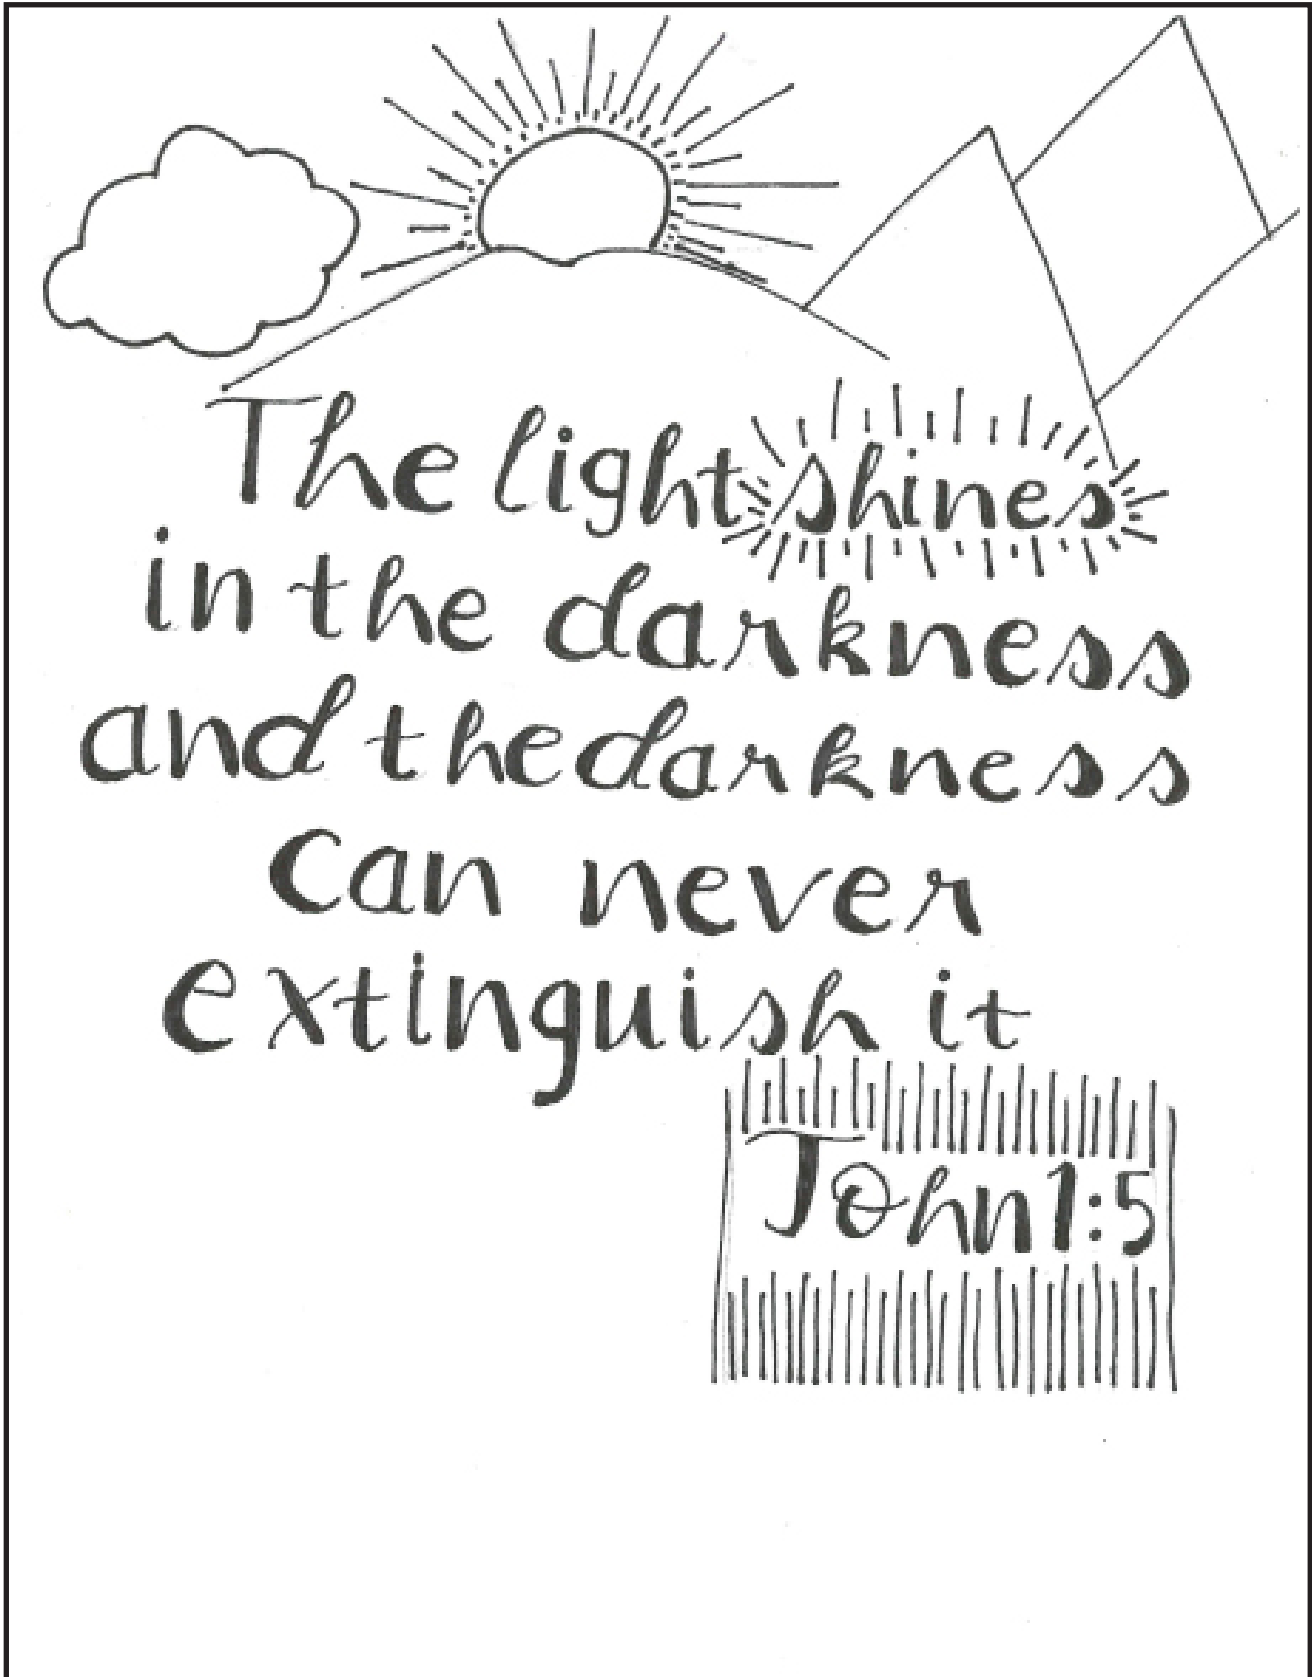 The light shines
in the darkness
and the darkness
can never
extinguish it
John 1:5